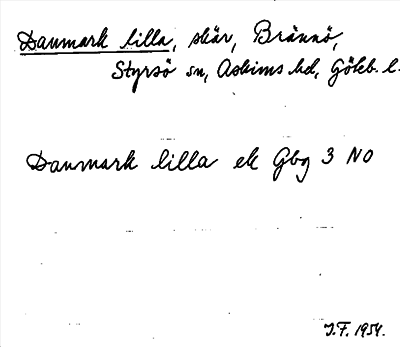 Danmark lilla, skär, Brännö,
Styrsö sn, Askims hd, Göteb. l.
Danmark lilla ek Gbg 3 NO
J.F. 1954.